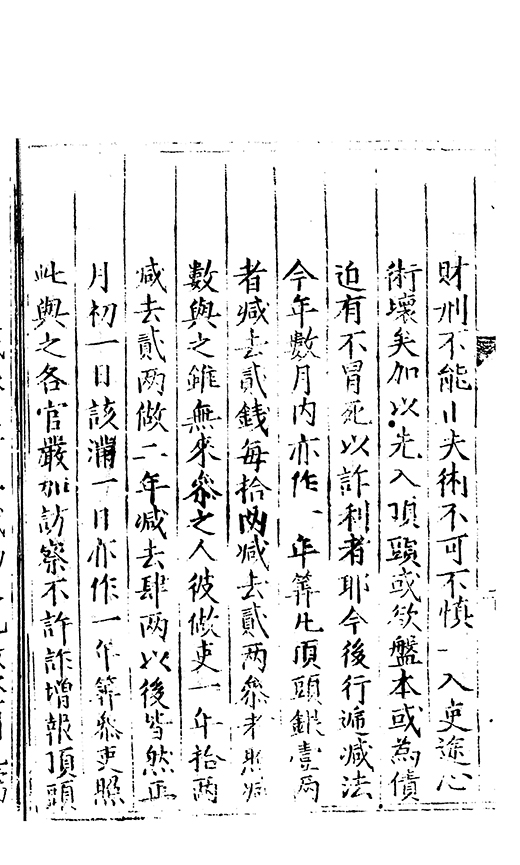 財刑不能止夫術不可不慎一入吏途心
術壞矣加以先入頂頭或欲盤本或為債
迫有不冒死以詐利者耶今後行遞減法
今年數月內亦作一年筭凡頂頭銀壹兩
者減去貳錢每拾兩減去貳兩叅者照減
數與之雖無來叅之人彼做吏一年拾兩
減去貳兩做二年減去肆兩以後皆然正
月初一日該滿一日亦作一年筭叅吏照
此與之各官嚴加訪察不許詐增報頂頭